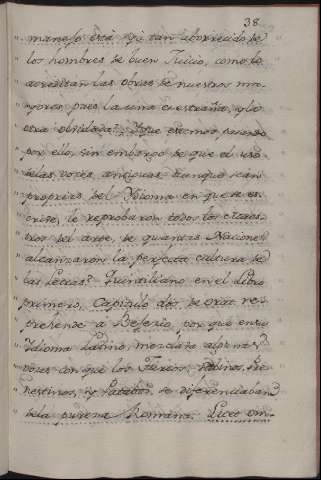 38
manejo está ya tan aborrecido de
los hombres de buen Juicio, como lo
acreditan las obras de nuestros ma-
jores pues la una es estraña, y la
otra olvidada? Y que estamos pasando
por ello, sin embargo de que el uso
delas voces antiguas aunque sean
proprias del Ydioma en que se es-
crive, le reprobaron todos los Maes-
tros del arte, de quantas Naciones
alcanzaron la perfecta cultura de
las Letras? Quintiliano en el Libro
primero, Capitulo dos de orat re-
prehende a
por que en su
Ydioma Latino, mezclava algunas
voces con que los Tuscos, Sabinos, Pre-
nestinos, y Patabos se diferenciaban
dela pureza Romana. Liceo om-